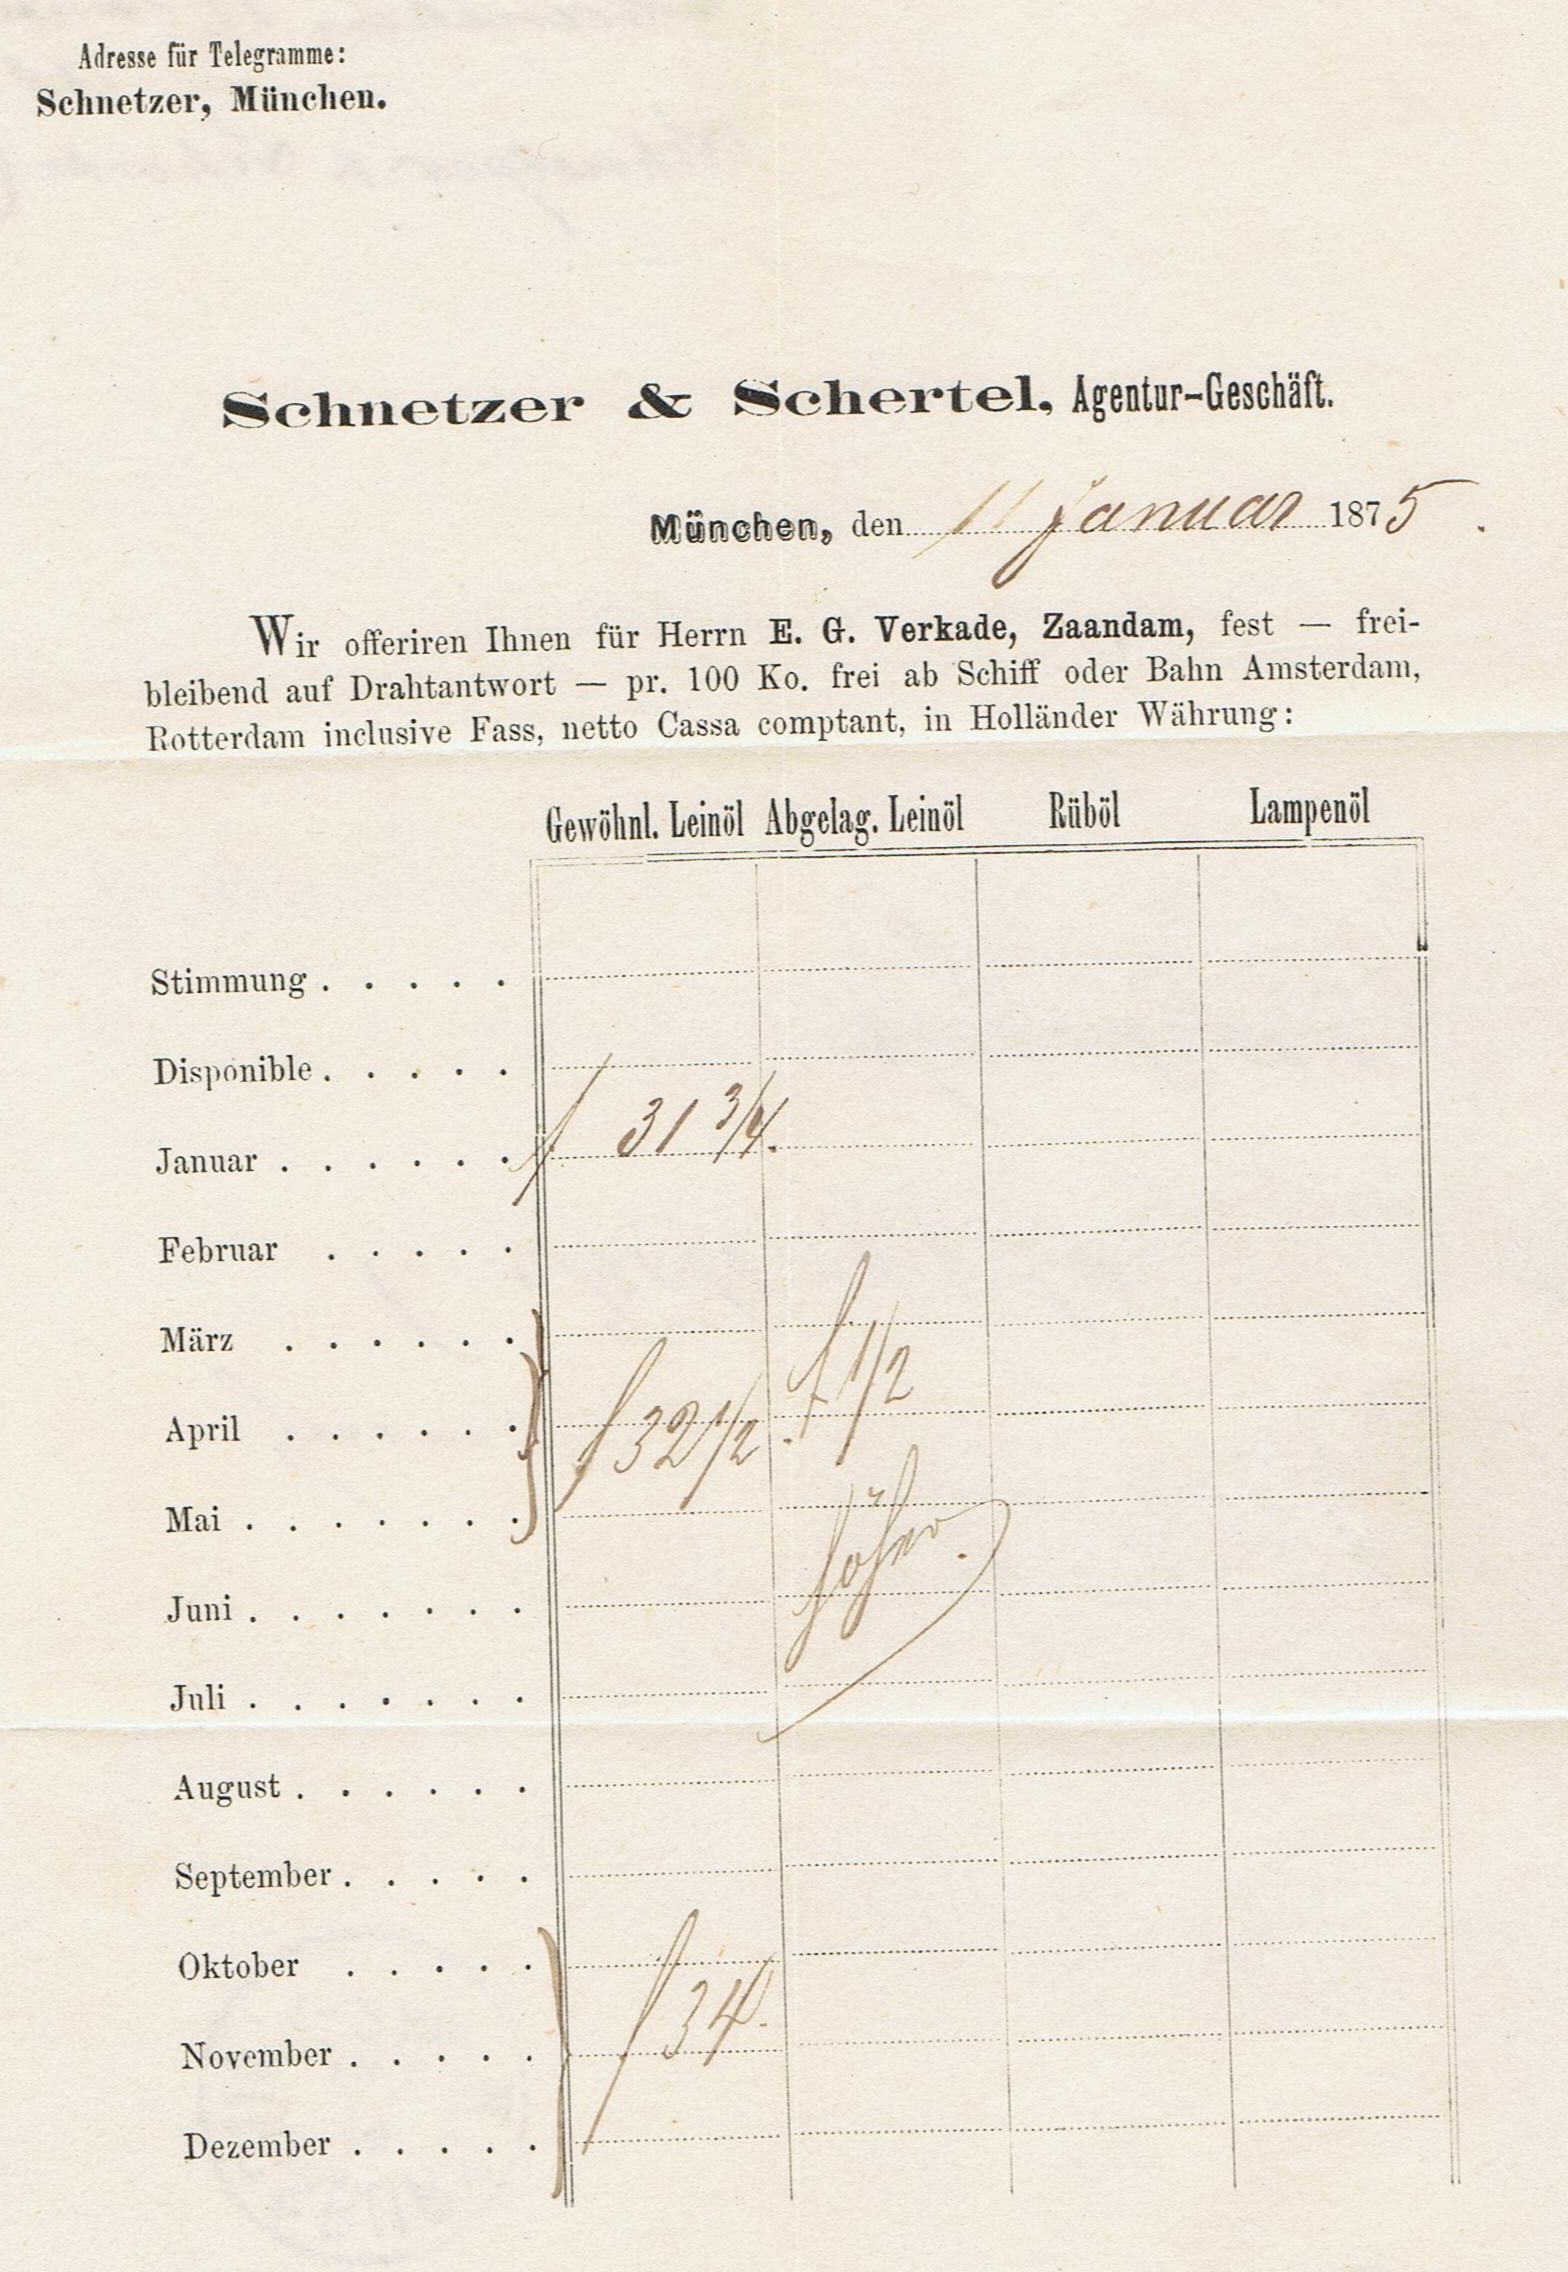 Adresse für Telegramme:
Schnetzer, München.
Schnetzer & Schertel, Agentur-Geschäft.
München, den 11 Januar 1875.
Wir offeriren Ihnen für Herrn E. G. Verkade, Zaandam, fest — frei-
bleibend auf Drahtantwort — pr. 100 Ko. frei ab Schiff oder Bahn Amsterdam,
Rotterdam inclusive Fass, netto Cassa comptant, in Holländer Währung:
Gewöhnl. Leinöl Abgelag. Leinöl Rüböl Lampenöl
Stimmung . . . . .
Disponible . . . . .
Januar . . . . . . f 31 3/4.
Februar . . . . .
März . . . . . .
April . . . . . . f 32 1/2. f 1/2
Mai . . . . . . . höher.
Juni . . . . . . .
Juli . . . . . . .
August . . . . . .
September . . . . .
Oktober . . . . .
November . . . . . f 34.
Dezember . . . . .